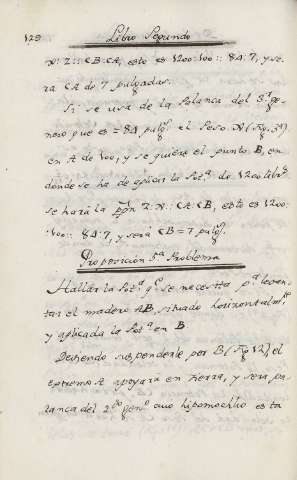 129
Libro Segundo
X: Z:: CB: CA, esto es 1200: 100:: 84: 7, y se-
ra CA de 7 pulgadas.
Si se usa de la Palanca del 3.º ge-
nero que es = 84 pulg.s el Peso X (Fig. 3.ª)
en A de 100, y se quiere el punto B, en
donde se ha de aplicar la Pot.ª de 1200 libr.s
se hará la ppn Z. X:: CA: CB, esto es 1200:
100:: 84: 7, y será CB = 7 pulg.s
Proposicion 5.ª Problema
Hallar la Pot.ª q.e se necesita p.ª levan-
tar el madero AB, situado horizontalm.te
y aplicada la Pot.ª en B
Deviendo suspenderle por B (Fig. 12) el
extremo A apoyará en tierra, y será pa-
lanca del 2.do gen.o cuio hipomochlio esta